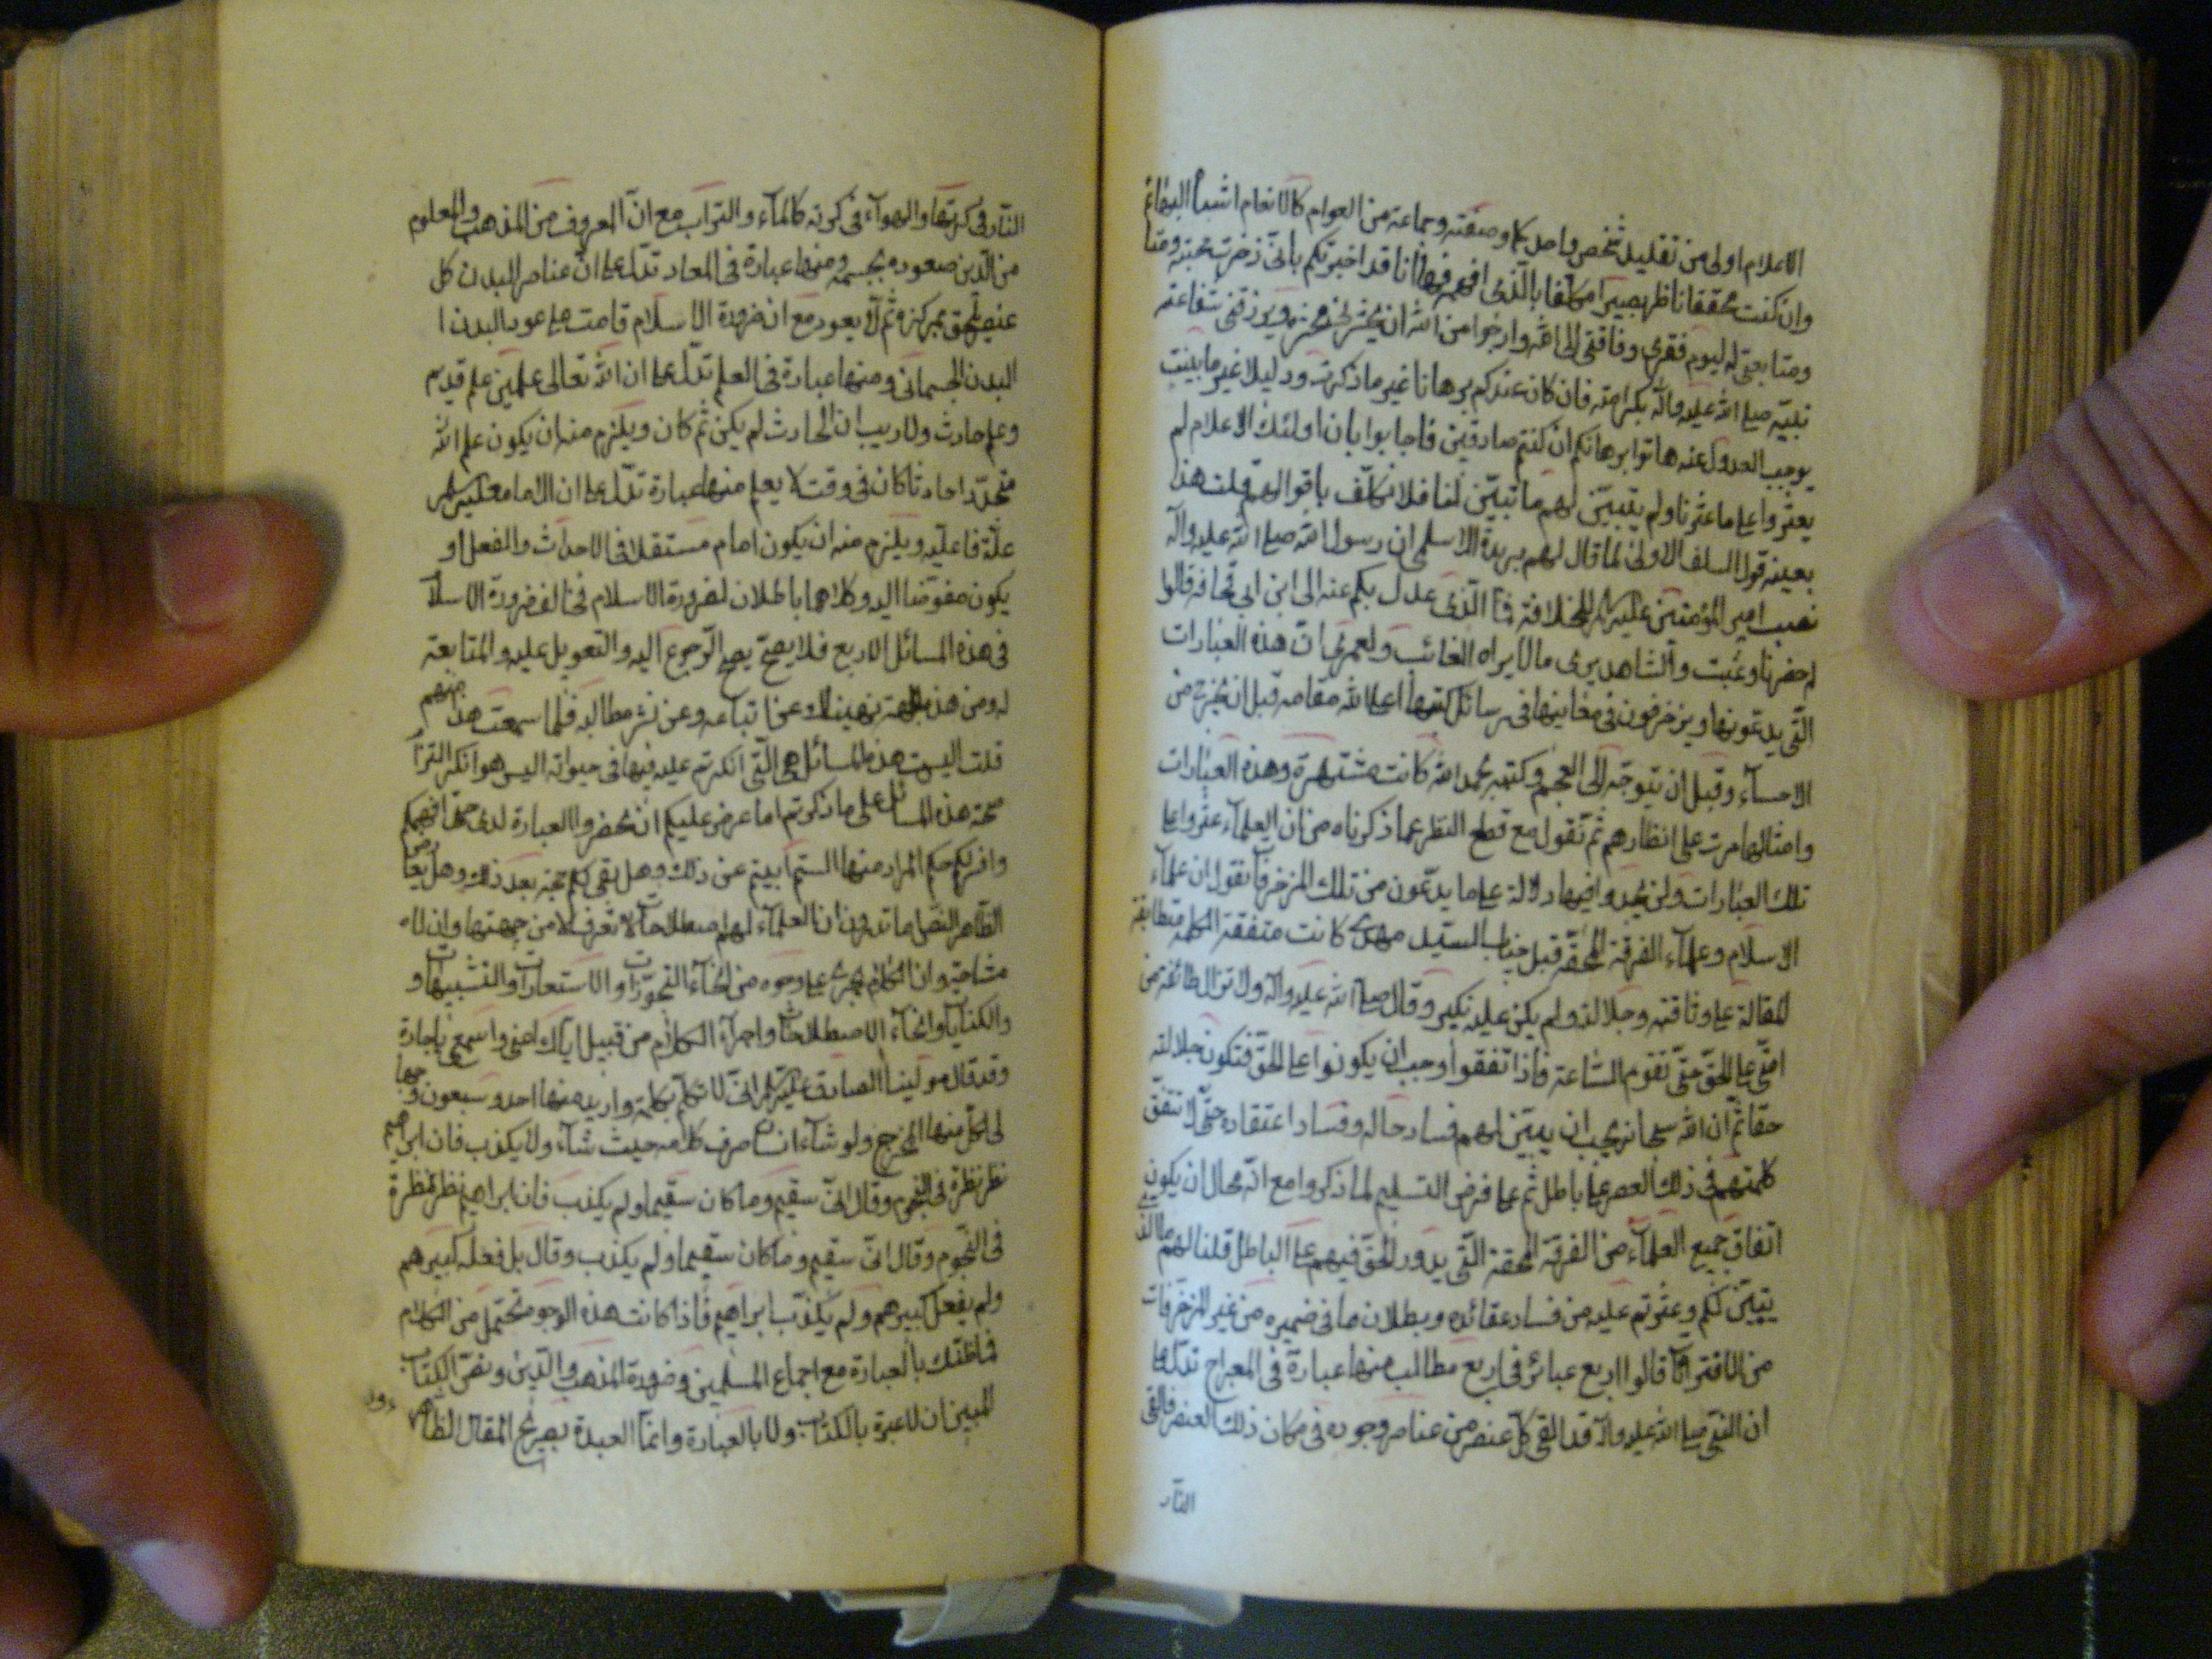 الاعلام اولى من تقليد شخص واحد بما وصفته وجماعة من العوام كالانعام اشباه البهائم
وان كنت محققا ناظرا بصيرا مكلفا بالذى افهم فها انا قد اخبرتكم بانى ذخرت محبته ومتا
ومتابعتى له ليوم فقرى وفاقتى الى الله وارجوا من الله ان يحشرنى ويرزقنى شفاعته
نبيه صلى الله عليه وآله بكرامته فان كان عندكم برهانا غير ما ذكرت ودليلا غير ما بينت
يوجب العدول عنه هاتوا برهانكم ان كنتم صادقين فاجابوا بان اولئك الاعلام لم
يعثروا على ما عثرنا ولم يتبين لهم ما تبين لنا فلا نكلف باقوالهم قلت هذا
بعينه قول السلف الاولى لما قال لهم بريدة الاسلمى ان رسول الله صلى الله عليه وآله
نصب امير المؤمنين عليه السلم للخلافة فما الذى عدل بكم عنه الى ابن ابى قحافة قالوا
لم حضرنا وغبت والشاهد يرى ما لا يراه الغائب ولعمرى ان هذه العبارات
التى يدعونها ويزخرفون فى معانيها فى رسائل كتبها اعلى الله مقامه قبل ان يخرج من
الاحساء وقبل ان يتوجه الى العجم وكتبه بحمد الله كانت مشتهرة وهذه العبارات
وامثالها مرت على انظارهم ثم نقول مع قطع النظر عما ذكرناه من ان العلماء عثروا على
تلك العبارات ولن يجدوا فيها دلالة على ما يدعون من تلك المزخرفا نقول ان علماء
الاسلام وعلماء الفرقة المحقة قبل جناب السيد مهدى كانت متفقة الكلمة متطابقة
المقالة على وثاقته وجلالته ولم يكن عليه نكير وقال صلى الله عليه وآله ولا تزال طائفة من
امتى على الحق حتى تقوم الساعة فاذا اتفقوا وجب ان يكونوا على الحق فتكون جلالته
حقا ثم ان الله سبحانه يجب ان يبين لهم فساد حاله وفساد اعتقاده حتى لا تتفق
كلمتهم فى ذلك العصر على باطل ثم على فرض التسليم لما ذكروا مع انه محال ان يكون
اتفاق جميع العلماء من الفرقة المحقة التى يدور الحق فيهم على الباطل قلنا لهم ما الذى
يتبين لكم وعثرتم عليه من فساد عقائده وبطلان ما فى ضميره من غير المزخرفات
من الافتراآت قالوا اربع عبائر فى اربع مطالب منها عبارة فى المعراج تدل على
ان النبى صلى الله عليه وآله قد القى كل عنصر من عناصر وجوده فى مكان ذلك العنصر فالقى
النار
النار فى كرتها والهواء فى كرته كالماء والتراب مع ان المعروف من المذهب والمعلوم
من الدين صعوده بجسمه ومنها عبارة فى المعاد تدل على ان عناصر البدن كل
عنصر يلحق بمركزه ثم لا يعود مع ان ضرورة الاسلام قامت على عود البدن ا
البدن الجسمانى ومنها عبارة فى العلم تدل على ان الله تعالى علمين علم قديم
وعلم حادث ولا ريب ان الحادث لم يكن ثم كان ويلزم منه ان يكون علم الله
متجددا حادثا كان فى وقت لا يعلم منها عبارة تدل على ان الامام عليه السلم
علة فاعليه ويلزم منه ان يكون امام مستقلا فى الاحداث والفعل او
يكون مفوضا اليه وكلاهما باطلان لضرورة الاسلام فخالف ضرورة الاسلا
فى هذه المسائل الاربع فلا يصح يصح الرجوع اليه والتعويل عليه والمتابعة
له ومن هذه الجهة نهينا لك وعن اتباعه وعن نشر مطالبه فلما سمعت هذا منهم
قلت اليست هذه المسائل هى التى انكرتم عليه فيها فى حيوته اليس هو انكر
صحة هذه المسائل على ما ذكرتم اما عرض عليكم ان تحضروا العبارة لدى حتى افهمكم
المراد منها الستم ابيتم عن ذلك وهل بقى لكم حجة بعد ذلك وهل يعارض
الظاهر النص اما تدرون ان العلماء لهم مصطلحات لا تعرف الا من جهتها وان لا
مشاحة وان الكلام يجرى على وجوه من انحاء التجوزات والاستعارات والتشبيهات و
والكنايات وانحاء الاصطلاحات واجراء الكلام من قبيل اياك اعنى واسمعى يا جارة
وقد قال مولينا الصادق عليه السلم انى لاتكلم بكلمة واريد منها احد وسبعون وجها
لى لكل منها المخرج ولو شاء انسان صرف كلامه حيث شاء ولا يكذب فان ابراهيم
نظر نظرة فى النجوم وقال انى سقيم وما كان سقيما ولم يكذب فان ابراهيم نظر نظرة
فى النجوم وقال انى سقيم وما كان سقيما ولم يكذب وقال بل فعله كبيرهم
ولم يفعل كبيرهم ولم يكذب ابراهيم فاذا كانت هذه الوجوه تحتمل من الكلام
فما ظنك بالعبارة مع اجماع المسلمين وضرورة المذهب والدين ونص الكتاب
المبين ان لا عبرة بالكتاب ولا بالعبارة وانما العبرة بصريح المقال الظاهر